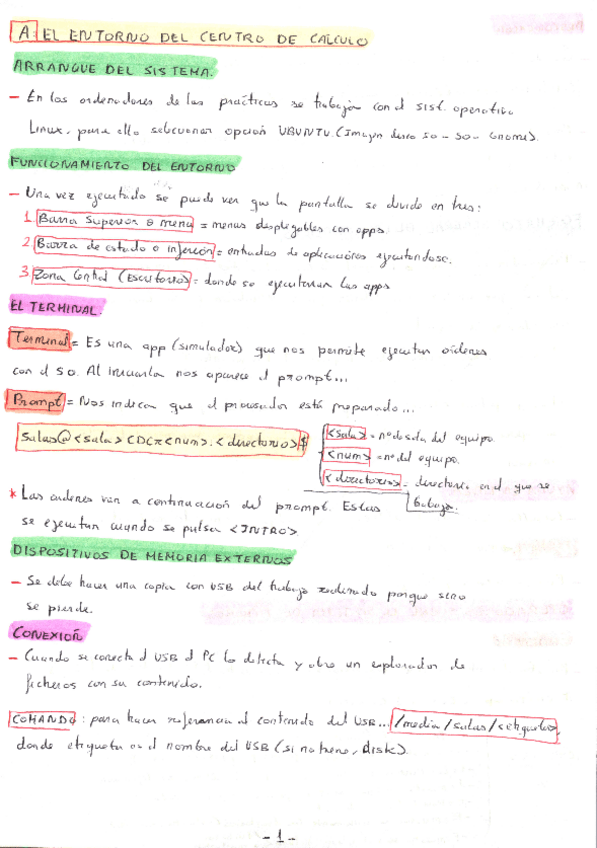 A: EL ENTORNO DEL CENTRO DE CALCULO
ARRANQUE DEL SISTEMA.
- En los ordenadores de las prácticas se trabaja con el sist. operativo
Linux, para ello seleccionar opción UBUNTU. (Imagen disco SO - SO - Gnome).
FUNCIONAMIENTO DEL ENTORNO
- Una vez ejecutado se puede ver que la pantalla se divide en tres:
1 Barra Superior o menu = menus desplegables con apps.
2. Barra de estado o inferior = entradas de aplicaciones ejecutandose.
3 Zona Central (Escritorio) = donde se ejecutaran las apps
EL TERMINAL.
Terminal = Es una app (simulador) que nos permite ejecutar ordenes
con el SO. Al iniciarla nos aparece el prompt...
Prompt = Nos indica que el procesador está preparado...
salas@<sala>CDC<num>:<directorio>$
<sala> = nº de sala del equipo.
<num> = nº del equipo.
<directorio> = directorio en el que se
trabaja.
* Las ordenes van a continuación del prompt. Estas
se ejecutan cuando se pulsa <INTRO>.
DISPOSITIVOS DE MEMORIA EXTERNOS
- Se debe hacer una copia con USB del trabajo realizado porque sino
se pierde.
CONEXIÓN
- Cuando se conecta el USB el PC lo detecta y abre un explorador de
ficheros con su contenido.
COMANDO: para hacer referencia al contenido del USB... /media/salas/<etiqueta>,
donde etiqueta es el nombre del USB (si no tiene, disk).
- 1 -